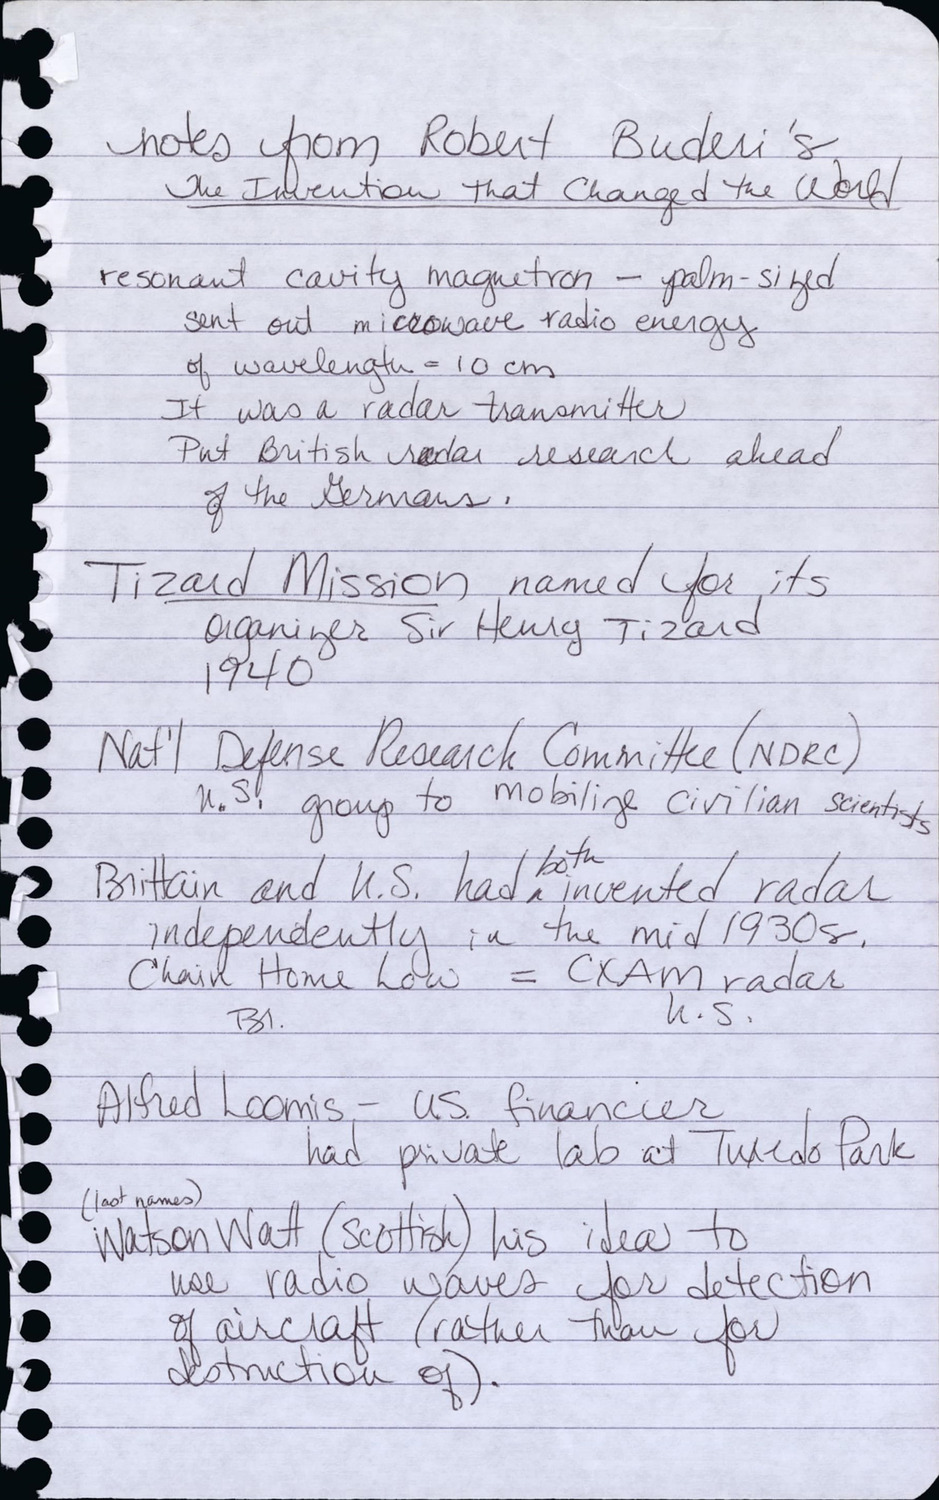 notes from Robert Buderi's
The Invention That Changed the World
resonant cavity magnetron – palm-sized
sent out microwave radio energy
of wavelength = 10 cm
It was a radar transmitter
Put British radar research ahead
of the Germans.
Tizard Mission named for its
organizer Sir Henry Tizard
1940
Nat'l Defense Research Committee (NDRC)
U.S. group to mobilize civilian scientists
Brittain and U.S. had both invented radar
independently in the mid 1930s.
Chain Home Low = CXAM radar
Br. U.S.
Alfred Loomis – US. financier
had private lab at Tuxedo Park
(last names)
Watson Watt (Scottish) his idea to
use radio waves for detection
of aircraft (rather than for
destruction of).